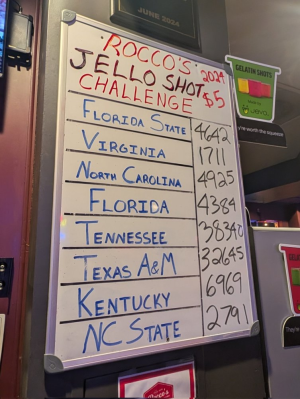 JUNE 2024
ROCCO'S 2024
JELLO SHOT
CHALLENGE $5
FLORIDA STATE 4642
VIRGINIA 1711
NORTH CAROLINA 4925
FLORIDA 4384
TENNESSEE 38340
TEXAS A&M 32645
KENTUCKY 6969
NC STATE 2791
GELATIN SHOTS
JEVO
you're worth the squeeze